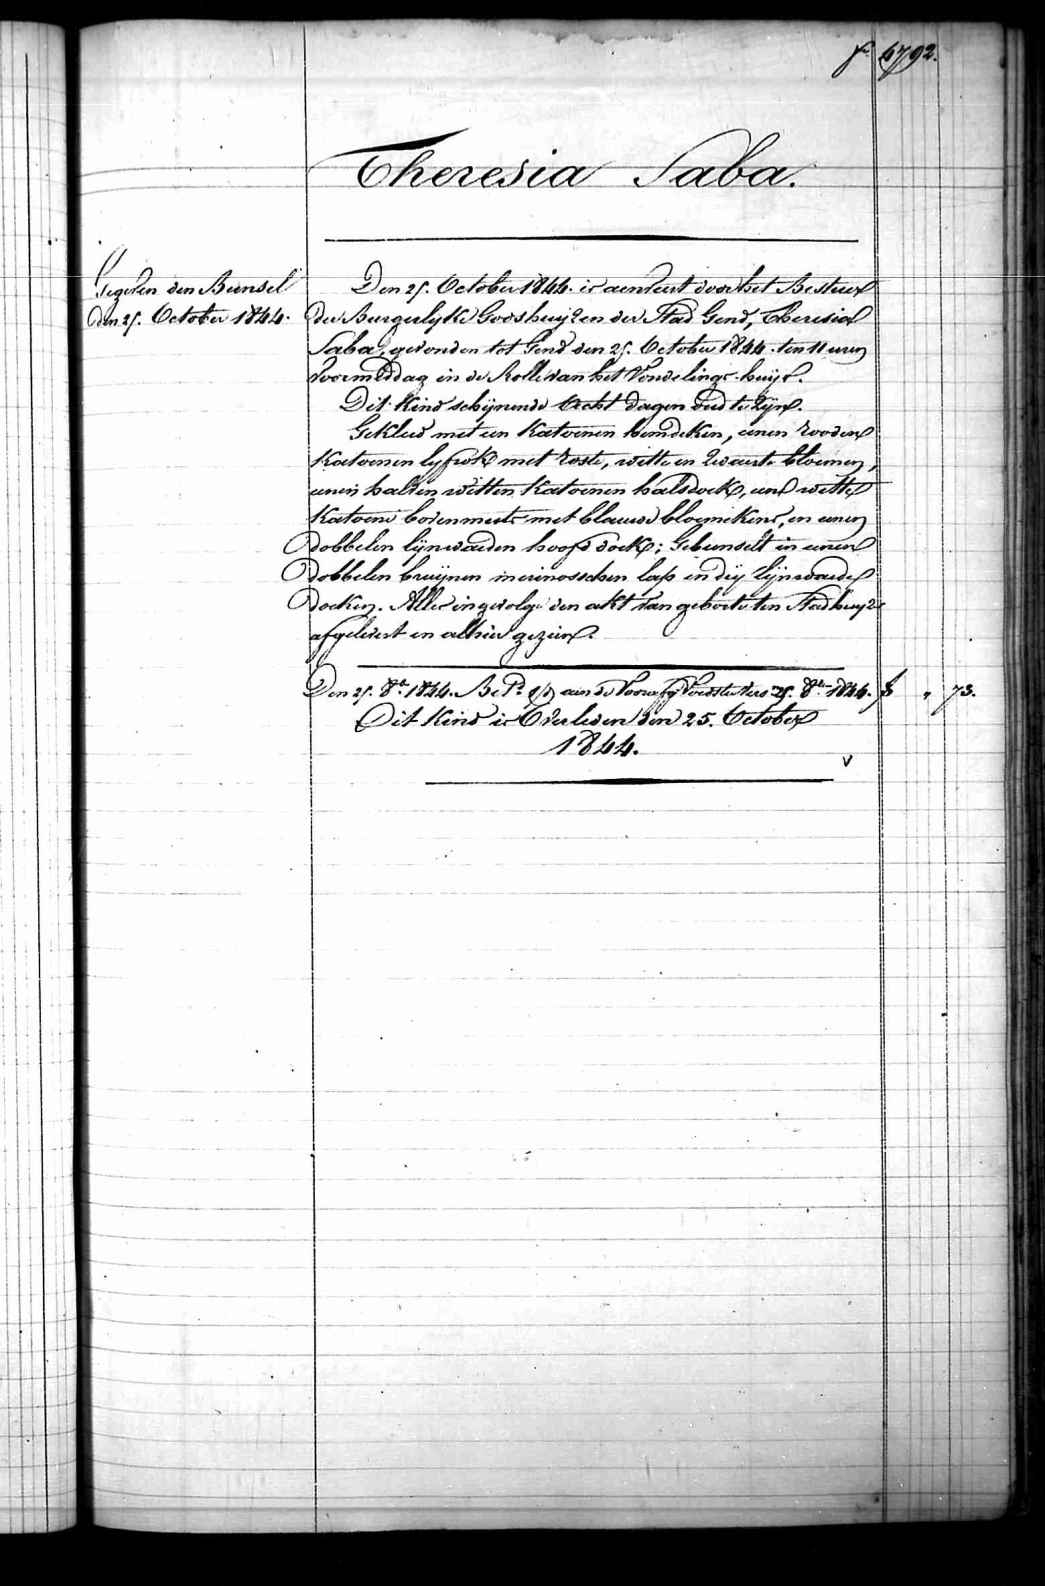 f° 6792.
Theresia Saba.
Gegeven den Bunsel
den 25. October 1844.
Den 25. October 1844. is aenveert door het Bestuer
der Burgerlyke Godshuyzen der Stad Gend, Theresia
Saba, gevonden tot Gend den 25. October 1844. ten 11 uren
Voormiddag in de Rolle van het Vondelings-huys.
Dit Kind schijnende Acht dagen oud te zijn.
Gekleed met een Katoenen hemdeken, eenen rooden
Katoenen lyfrok met roste, witte en zwarte bloemen,
eenen halven witten Katoenen halsdoek, eene witte
Katoene bovenmuts met blauwe bloemekens, en eenen
dobbelen lijnwaeden hoofd doek; Gebunselt in eenen
dobbelen bruijnen merinosschen lap en dry lijnwaede
doeken. Alles ingevolge den akt van geboorte ten Stadhuyze
afgelevert en alhier gezien.
Den 25. 8br 1844. Bet. aen de Voorlopige Voedsters 25. 8br 1844. f " 73.
Dit Kind is Overleden den 25. October
1844.
v